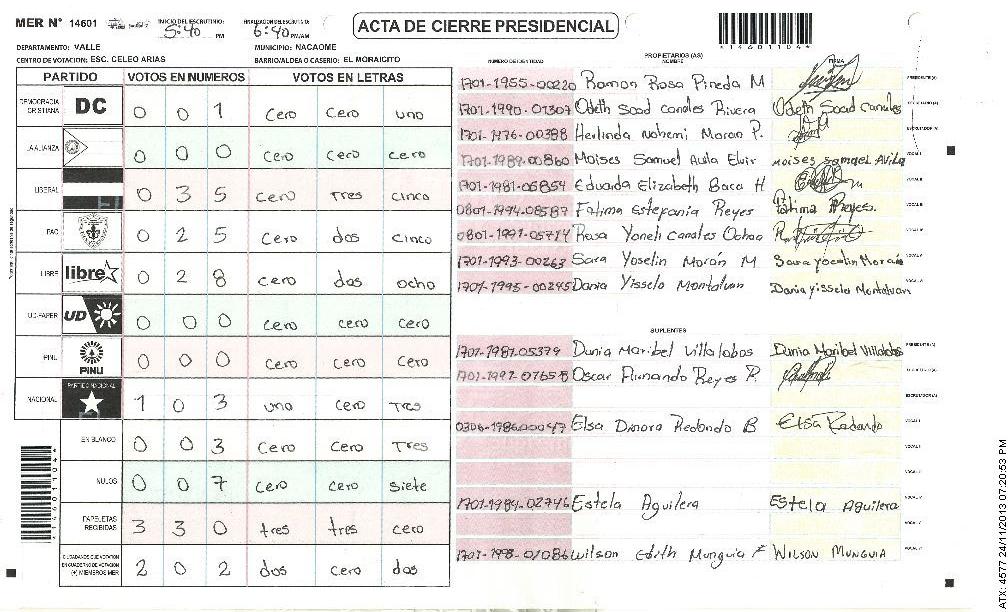 MER N° 14601 INICIO DEL ESCRUTINIO: 5:40 PM FINALIZACION DEL ESCRUTINIO: 6:40 PM/AM ACTA DE CIERRE PRESIDENCIAL
*14601104*
DEPARTAMENTO: VALLE MUNICIPIO: NACAOME
CENTRO DE VOTACION: ESC. CELEO ARIAS BARRIO/ALDEA O CASERIO: EL MORAICITO
PARTIDO VOTOS EN NUMEROS VOTOS EN LETRAS
DEMOCRACIA CRISTIANA DC 0 0 1 cero cero uno
LA ALIANZA 0 0 0 cero cero cero
LIBERAL 0 3 5 cero tres cinco
PAC 0 2 5 cero dos cinco
LIBRE libre 0 2 8 cero dos ocho
UD-FAPER UD 0 0 0 cero cero cero
PINU PINU 0 0 0 cero cero cero
NACIONAL PARTIDO NACIONAL 1 0 3 uno cero tres
EN BLANCO 0 0 3 cero cero tres
NULOS 0 0 7 cero cero siete
PAPELETAS RECIBIDAS 3 3 0 tres tres cero
CIUDADANOS QUE VOTARON EN CUADERNO DE VOTACION (+) MIEMBROS MER 2 0 2 dos cero dos
PROPIETARIOS (AS)
NUMERO DE IDENTIDAD NOMBRE FIRMA
1701-1955-00220 Ramon Rosa Pineda M PRESIDENTE(A)
1701-1990-01307 Odeth Soad canales Rivera Odeth Soad canales
1701-1976-00388 Herlinda Nohemi Moran P.
1701-1989-00860 Moises Samuel Avila Elvir moises samael Avila
1701-1981-05854 Eduarda Elizabeth Baca H
0801-1994-08587 Fatima Estefania Reyes Fatima Reyes.
0801-1991-05714 Rosa Yaneli canales Ochoa
1701-1993-00263 Sara Yoselin Morán M Sara yoselin Morán
1701-1995-00245 Dania Yissela Montalvan Dania yissela Montalvan
SUPLENTES
1701-1981-05379 Dunia Maribel Villalobos Dunia Maribel Villalobos PRESIDENTE(A)
1701-1997-07658 Oscar Armando Reyes P.
ESCRUTADOR(A)
0306-1986-00047 Elsa Dinora Redondo B Elsa Redondo
1701-1984-02746 Estela Aguilera Estela Aguilera
Wilson Edith Munguia F WILSON MUNGUIA
*14601104*
ATX: 4577 24/11/2013 07:20:53 PM